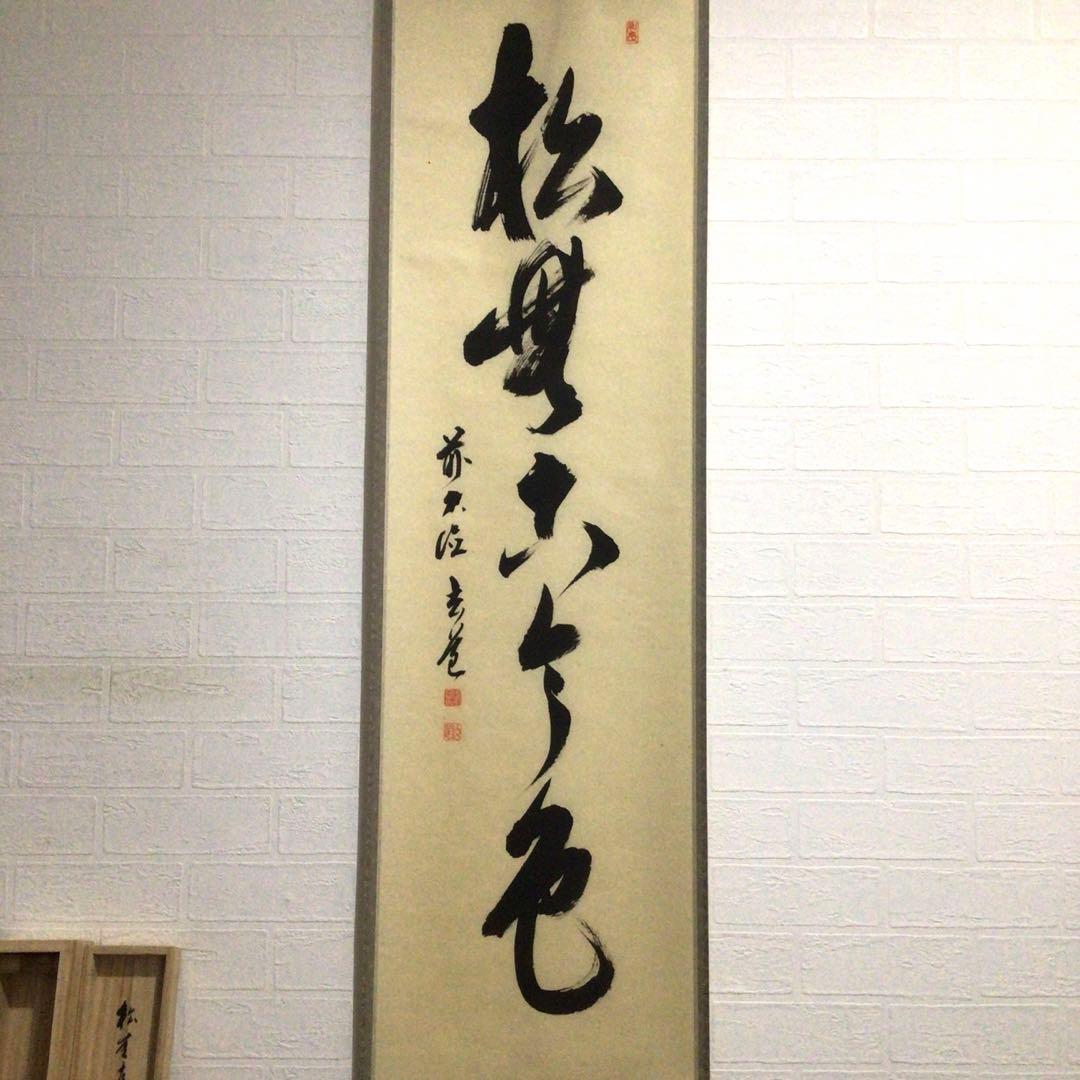 松無古今色
前大徳
松無古